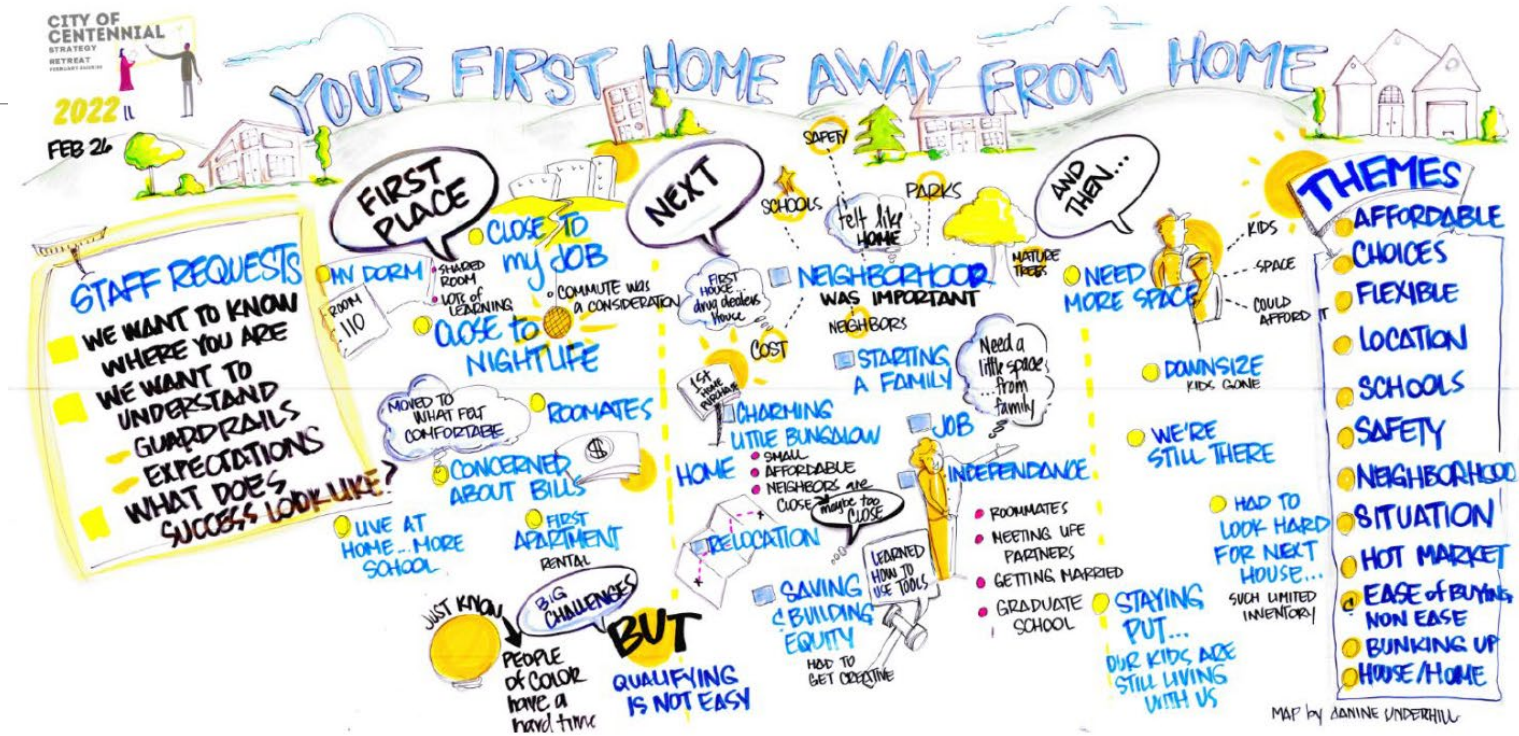 CITY OF
CENTENNIAL
STRATEGY
RETREAT
2022
FEB 26
YOUR FIRST HOME AWAY FROM HOME
STAFF REQUESTS
WE WANT TO KNOW
WHERE YOU ARE
WE WANT TO
UNDERSTAND
GUARDRAILS
EXPECTATIONS
WHAT DOES
SUCCESS LOOK LIKE?
FIRST
PLACE
MY DORM
SHARED
ROOM
LOTS OF
LEARNING
ROOM
110
CLOSE TO
MY JOB
COMMUTE WAS
A CONSIDERATION
CLOSE TO
NIGHTLIFE
MOVED TO
WHAT FELT
COMFORTABE
ROOMATES
$
CONCERNED
ABOUT BILLS
LIVE AT
HOME...MORE
SCHOOL
FIRST
APARTMENT
RENTAL
JUST KNOW
BIG
CHALLENGES
PEOPLE
OF COLOR
have a
hard time
BUT
QUALIFYING
IS NOT EASY
NEXT
SAFETY
SCHOOLS
felt like
HOME
PARKS
MATURE
TREES
FIRST
HOUSE
drug dealers
House
NEIGHBORHOOD
WAS IMPORTANT
NEIGHBORS
COST
STARTING
A FAMILY
Need a
little space
...from
family
1st
HOME
PURCHASE
CHARMING
LITTLE BUNGALOW
HOME
SMALL
AFFORDABLE
NEIGHBORS are
CLOSE
maybe too
CLOSE
JOB
INDEPENDANCE
ROOMMATES
MEETING LIFE
PARTNERS
GETTING MARRIED
GRADUATE
SCHOOL
RELOCATION
LEARNED
HOW TO
USE TOOLS
SAVING
& BUILDING
EQUITY
HAD TO
GET CREATIVE
AND
THEN...
NEED
MORE SPACE
KIDS
SPACE
COULD
AFFORD IT
DOWNSIZE
KIDS GONE
WE'RE
STILL THERE
HAD TO
LOOK HARD
FOR NEXT
HOUSE...
SUCH LIMITED
INVENTORY
STAYING
PUT...
OUR KIDS ARE
STILL LIVING
WITH US
THEMES
AFFORDABLE
CHOICES
FLEXIBLE
LOCATION
SCHOOLS
SAFETY
NEIGHBORHOOD
SITUATION
HOT MARKET
EASE of BUYING
& NON EASE
BUNKING UP
HOUSE/HOME
MAP by JANINE UNDERHILL